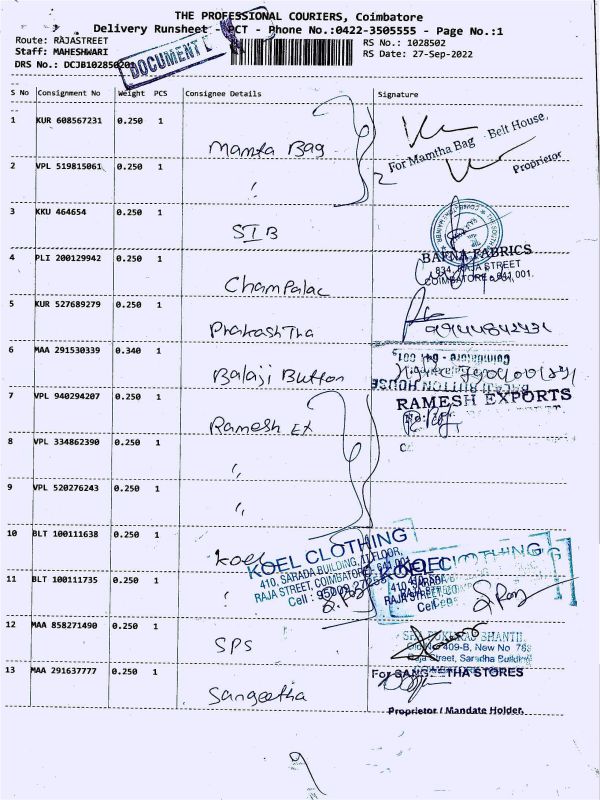 THE PROFESSIONAL COURIERS, Coimbatore
Delivery Runsheet - PCT - Phone No.:0422-3505555 - Page No.:1
Route: RAJASTREET
RS No.: 1028502
Staff: MAHESHWARI
RS Date: 27-Sep-2022
DRS No.: DCJB102850201
DOCUMENT
S No Consignment No Weight PCS Consignee Details Signature
1 KUR 608567231 0.250 1 Mamta Bag
For Mamtha Bag Belt House,
Proprietor
2 VPL 519815061 0.250 1 "
2
3 KKU 464654 0.250 1 SIB
4 PLI 200129942 0.250 1 Champalac
BAFNA FABRICS
834, RAJA STREET
COIMBATORE - 641 001.
5 KUR 527689279 0.250 1 PrakashTha
6 MAA 291530339 0.340 1 Balaji Button
Coimbatore - 641 001
BALAJI BUTTON HOUSE
7 VPL 940294207 0.250 1 Ramesh Ex
RAMESH EXPORTS
8 VPL 334862390 0.250 1 "
9 VPL 520276243 0.250 1 "
10 BLT 100111638 0.250 1 Koel
KOEL CLOTHING
410, SARADA BUILDING, II FLOOR,
RAJA STREET, COIMBATORE
Cell : 95009
11 BLT 100111735 0.250 1 "
KOEL CLOTHING
410, SARADA
RAJA STREET
Cell
12 MAA 858271490 0.250 1 SPS
Old No 409-B, New No 763
Raja Street, Saradha Building
13 MAA 291637777 0.250 1 Sangeetha
For SANGEETHA STORES
Proprietor / Mandate Holder.
9